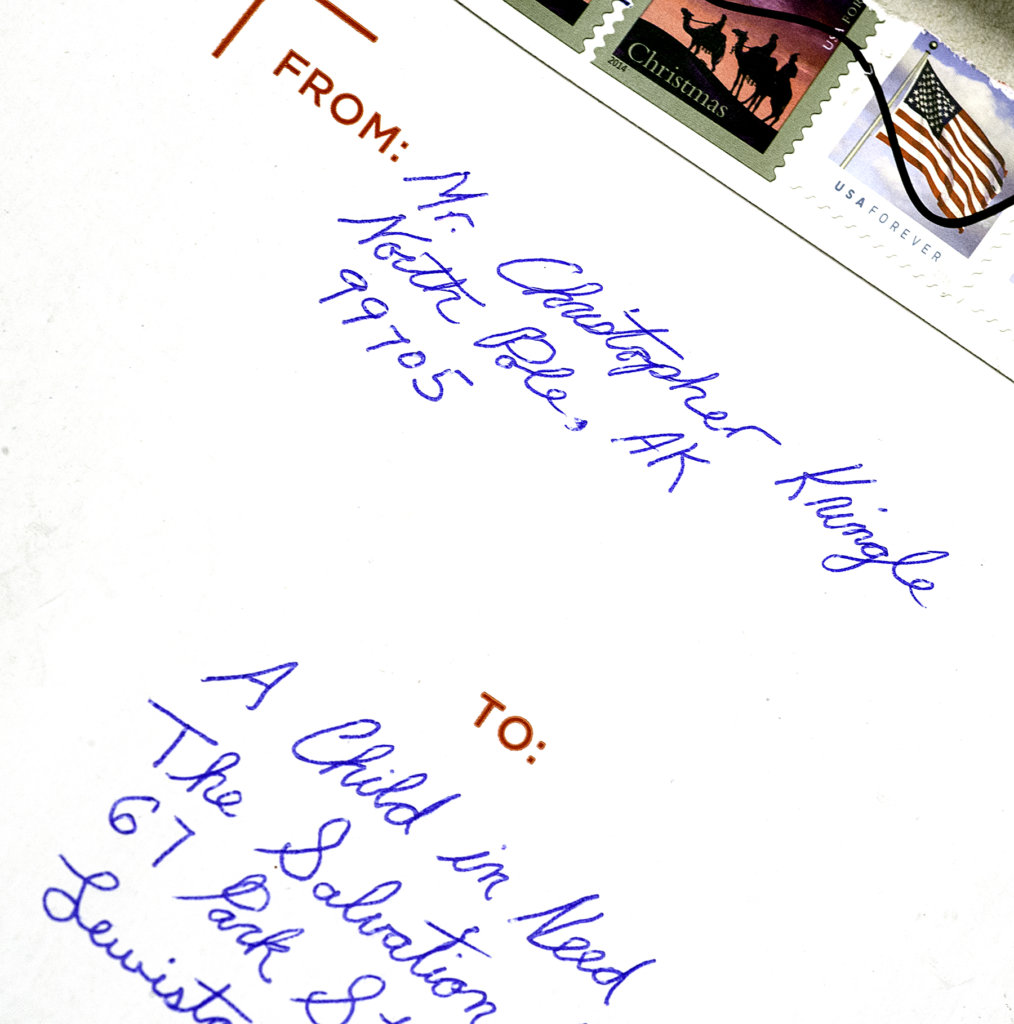 USA FOR
Christmas
2014
USA FOREVER
FROM:
Mr. Christopher Kringle
North Pole, AK
99705
TO:
A Child in Need
The Salvation
67 Park St
Lewisto